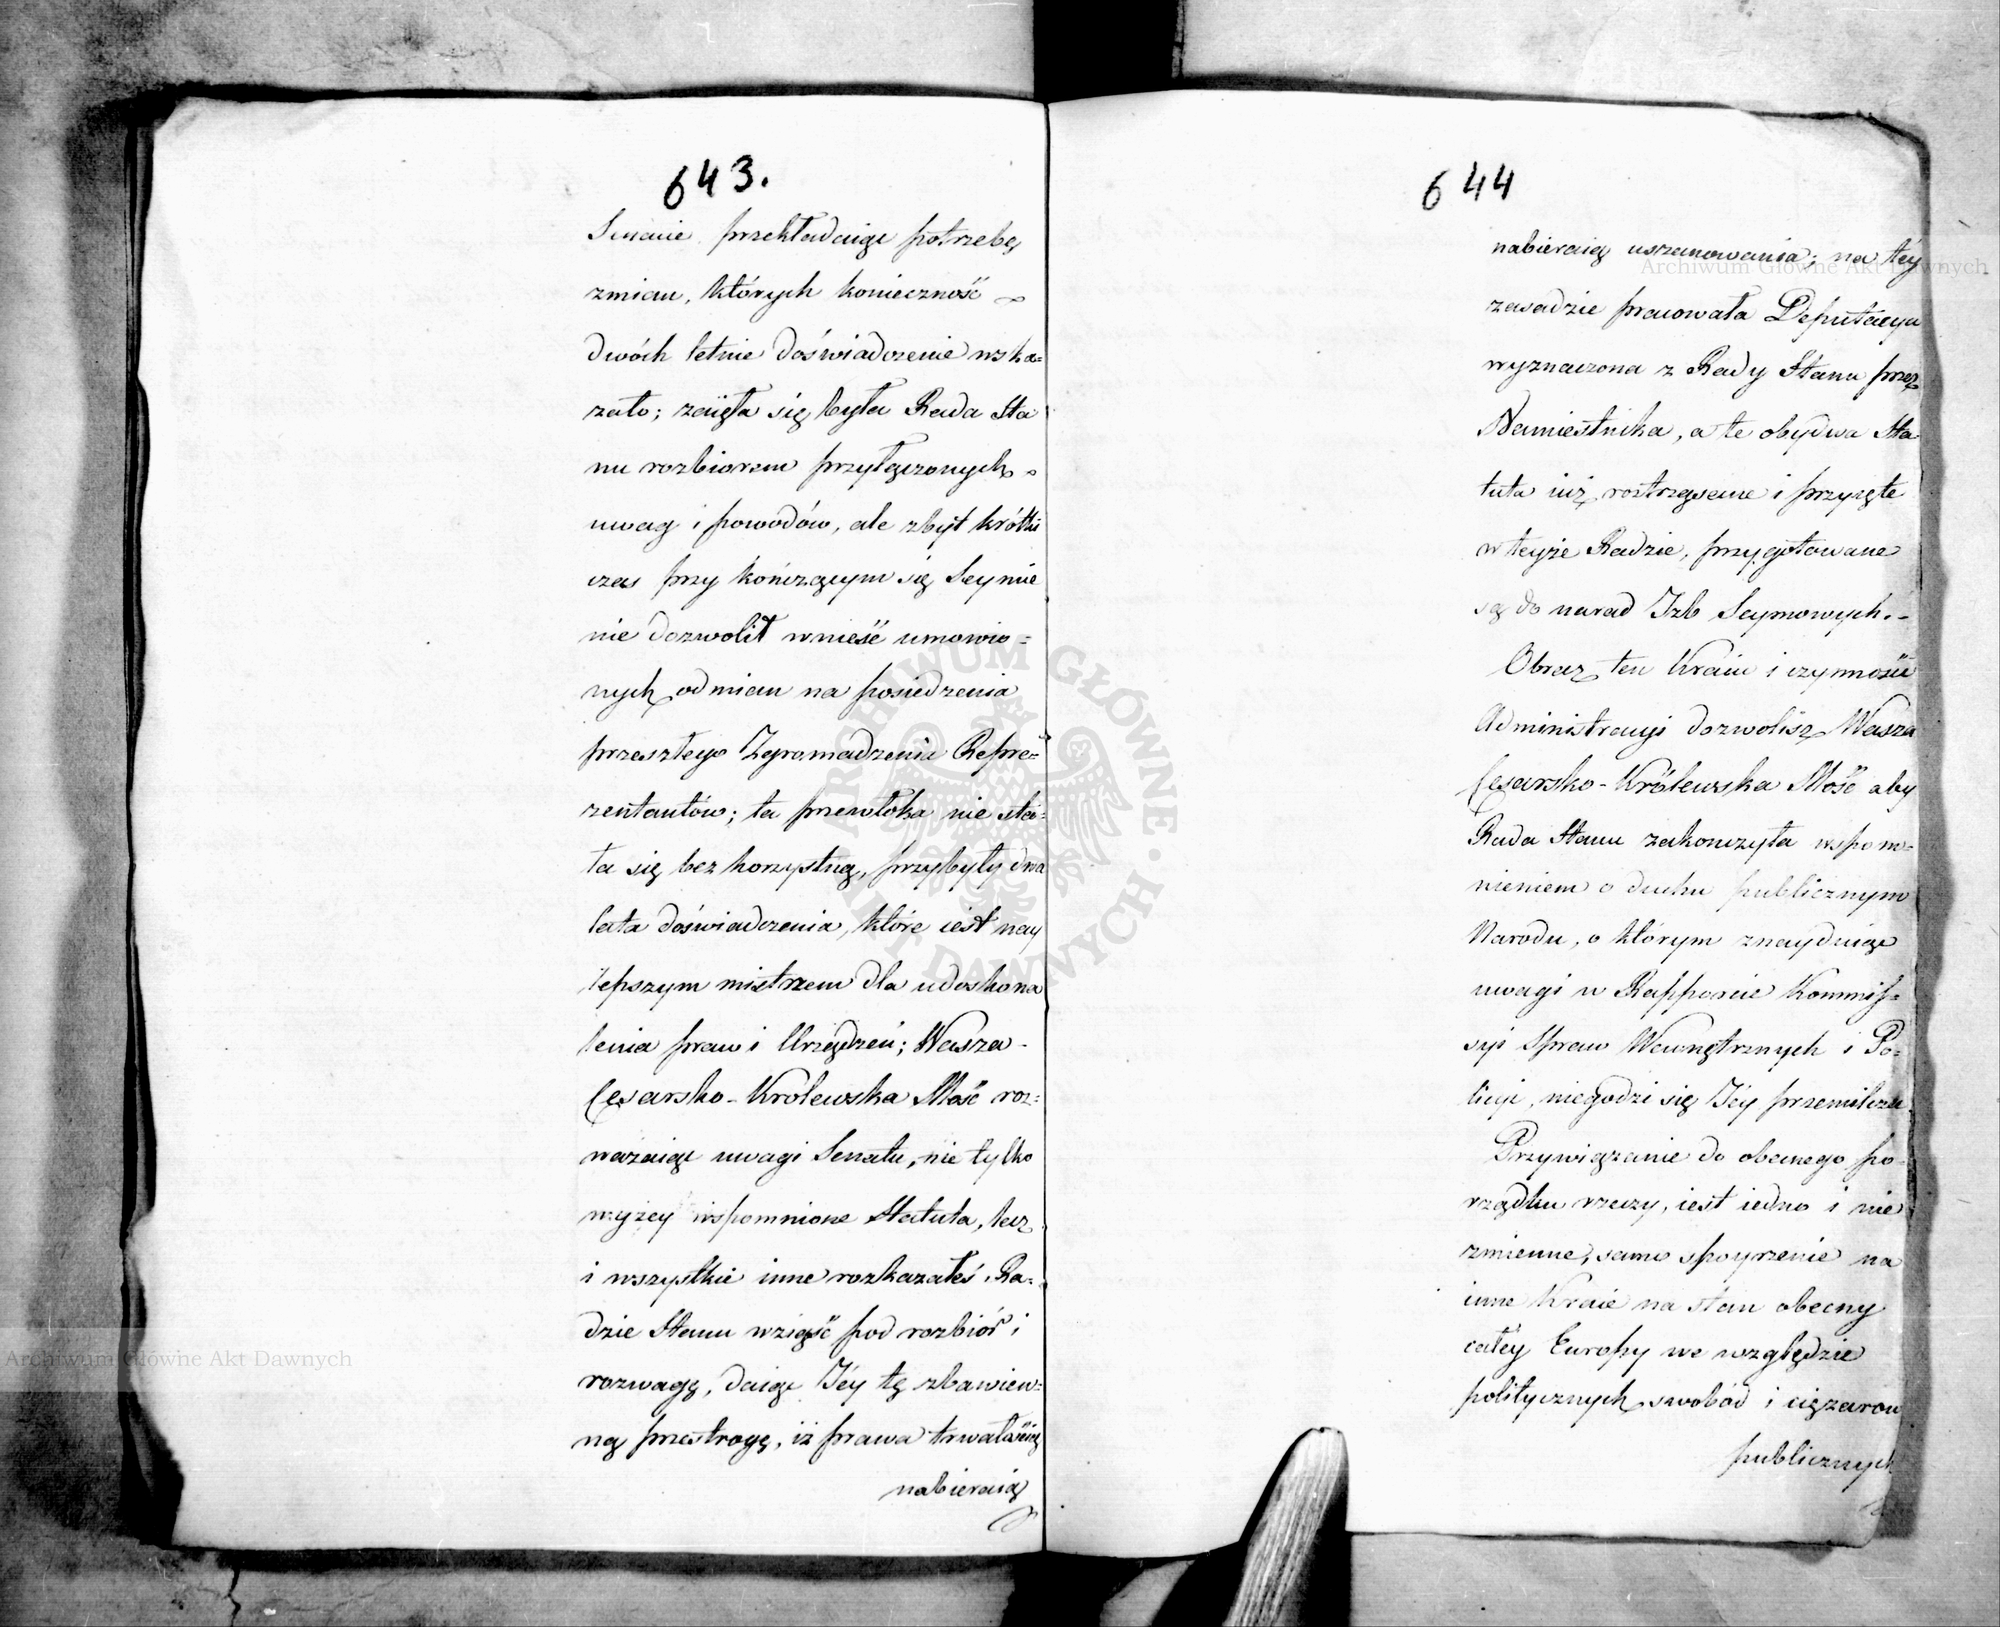 643.
Senacie przekładaiąc potrzebę
zmian, których konieczność
dwóch letnie doświadczenie wska=
zało; zaięła się była Rada Sta
nu rozbiorem przyłączonych
uwag i powodów, ale zbyt krótki
czas przy kończącym się Seymie
nie dozwolił wnieść umowio=
nych odmian na posiedzenia
przeszłego Zgromadzenia Repre=
zentantów; ta przewłoka nie sta=
ła się bez korzystną, przybyły dwa
lata doświadczenia, które iest nay
lepszym mistrzem dla udoskona
lenia praw i Urządzeń; Wasza-
Cesarsko-Królewska Mość roz=
ważaiąc uwagi Senatu, nie tylko
wyżey wspomnione Statuta, lecz
i wszystkie inne rozkazałeś Ra=
dzie Stanu wziąść pod rozbiór i
rozwagę, daiąc Jéy tę zbawien=
ną przestrogę, iż prawa trwałością
nabieraią
644
nabieraią uszanowania; na téy
zasadzie pracowała Deputacya
wyznaczona z Rady Stanu przez
Namiestnika, a te obydwa Sta
tuta iuż roztrząsane i przyięte
w teyże Radzie, przygotowane
są do narad Izb Seymowych.-
Obraz ten Kraiu i czynności
Administracyi dozwolisz Wasza
Cesarsko-Królewska Mość aby
Rada Stanu zakonczyła wspom=
nieniem o duchu publicznym
Narodu, o którym znayduiąc
uwagi w Rapporcie Kommis=
syi Spraw Wewnętrznych i Po=
licyi, niegodzi się Jéy przemilczeć
Przywiązanie do obecnego po=
rządku rzeczy, iest iedno i nie
zmienne, samo spoyrzenie na
inne Kraie na stan obecny
całéy Europy we względzie
politycznych swobód i ciężarow
publicznych
Archiwum Główne Akt Dawnych
Archiwum Główne Akt Dawnych
ARCHIWUM GŁÓWNE · AKT DAWNYCH ·